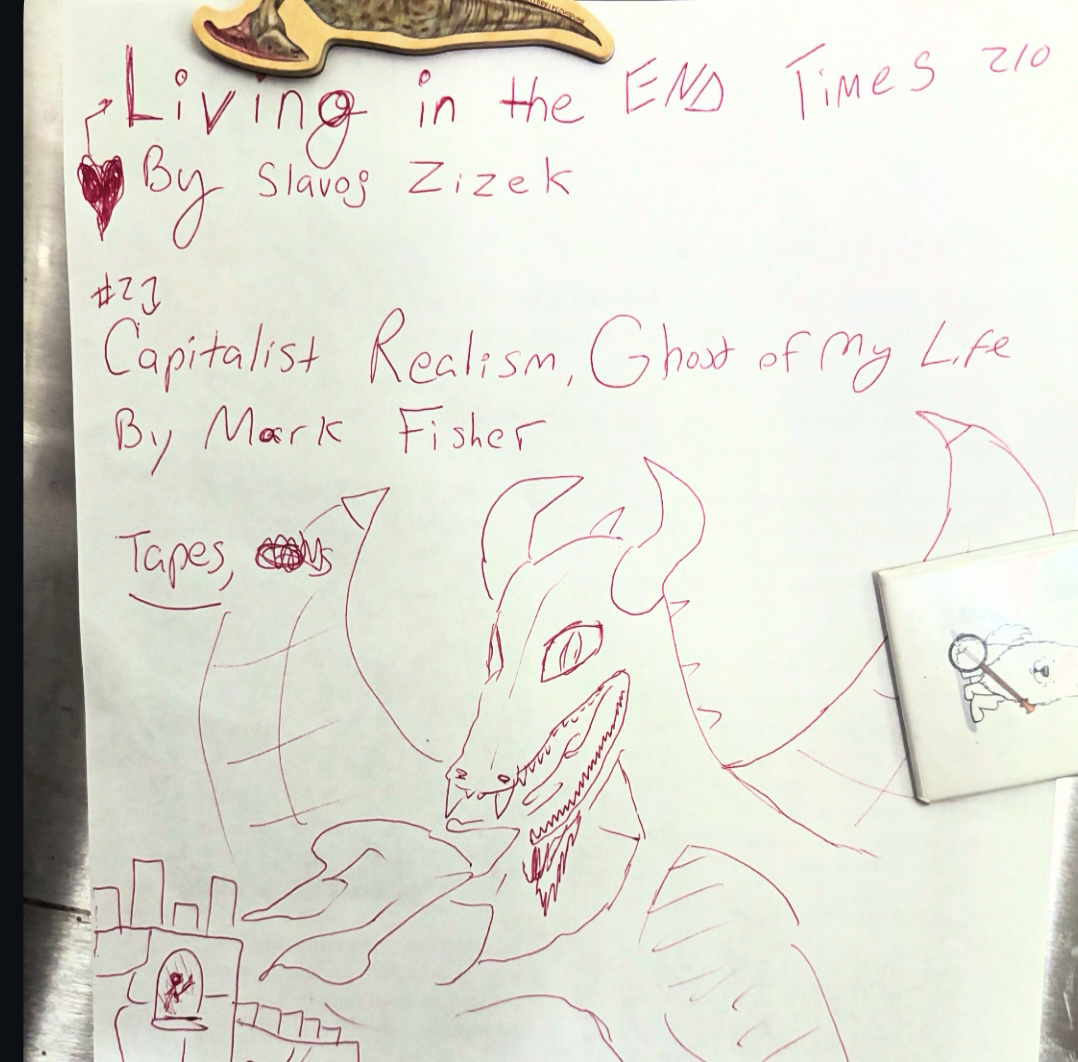 Living in the END Times 210
By Slavoj Zizek
#23
Capitalist Realism, Ghost of My Life
By Mark Fisher
Tapes,